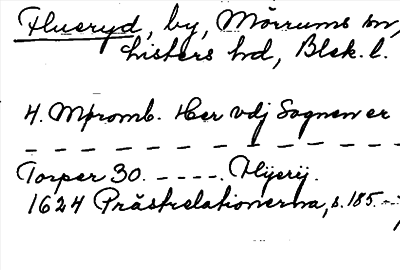 Hueryd, by, Mörrums sn,
Listers hd, Blek. l.
4. Mpromb. Her vdj Sognen er
- - - - - - - - - - - - -
Torper 30. - - - -. Hyerij.
1624 Prästrelationerna, s. 185. -